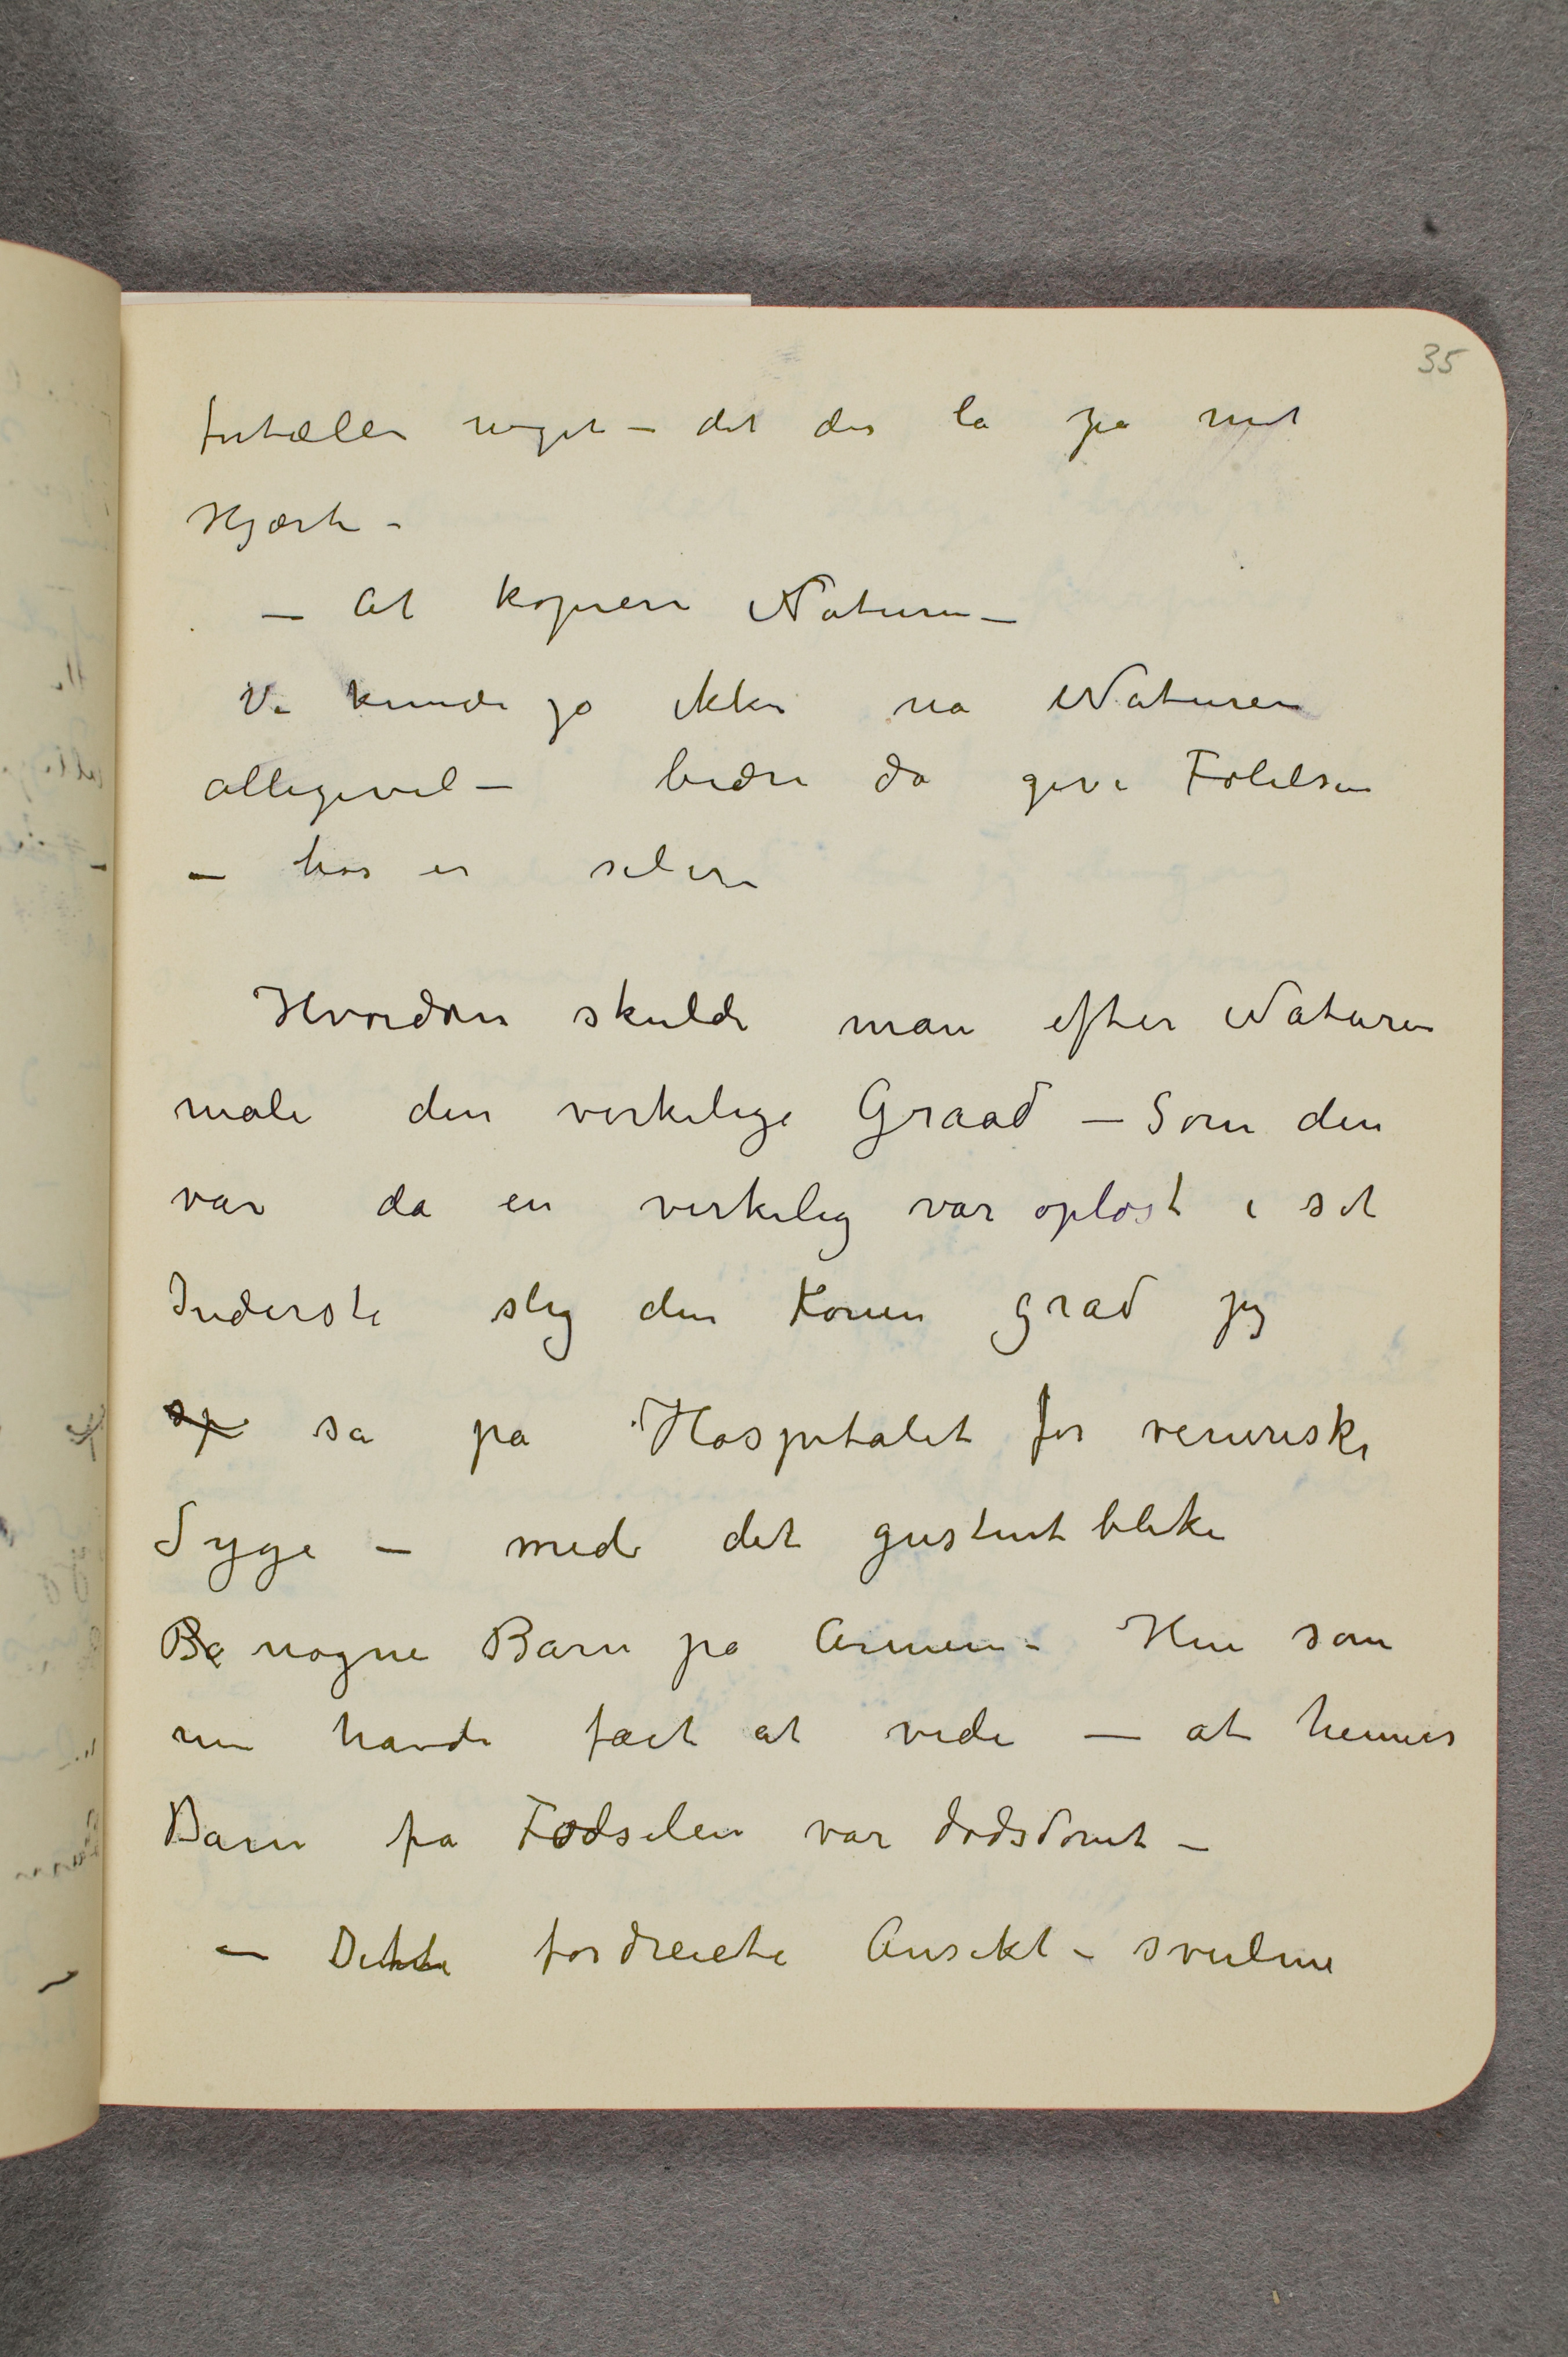 35
fortælle noget – det der la på mit
Hjærte –
– At kopiere Naturen –
Vi kunde jo ikke na Naturen
alligevel – bedre da give Følelsen
– hos en selven
Hvordan skulde man efter Naturen
male den virkelige Graad – Som den
var da en virkelig var opløst i sit
Inderste slig den Konen grad jeg
sp sa pa Hospitalet for veneriske
Syge – med det gustent bleke
Ba nøgne Barn pa Armen – Hun som
nu havde fået at vide – at hennes
Barn fra Fødselen var dødsdømt –
– Dette fordreiete Ansikt – svulne